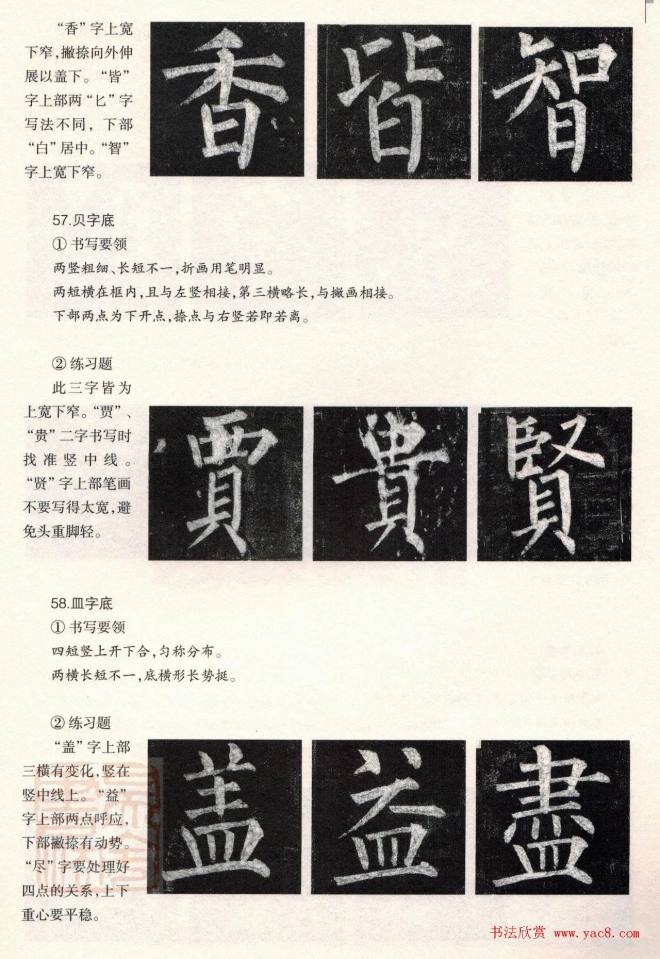 “香”字上宽
下窄,撇捺向外伸
展以盖下。“皆”
字上部两“匕”字
写法不同，下部
“白”居中。“智”
字上宽下窄。
香 皆 智
57.贝字底
① 书写要领
两竖粗细、长短不一,折画用笔明显。
两短横在框内,且与左竖相接,第三横略长,与撇画相接。
下部两点为下开点,捺点与右竖若即若离。
② 练习题
此三字皆为
上宽下窄。“贾”、
“贵”二字书写时
找准竖中线。
“贤”字上部笔画
不要写得太宽,避
免头重脚轻。
賈 貴 賢
58.皿字底
① 书写要领
四短竖上开下合,匀称分布。
两横长短不一,底横形长势挺。
② 练习题
“盖”字上部
三横有变化,竖在
竖中线上。“益”
字上部两点呼应,
下部撇捺有动势。
“尽”字要处理好
四点的关系,上下
重心要平稳。
盖 益 盡
书法欣赏 www.yac8.com